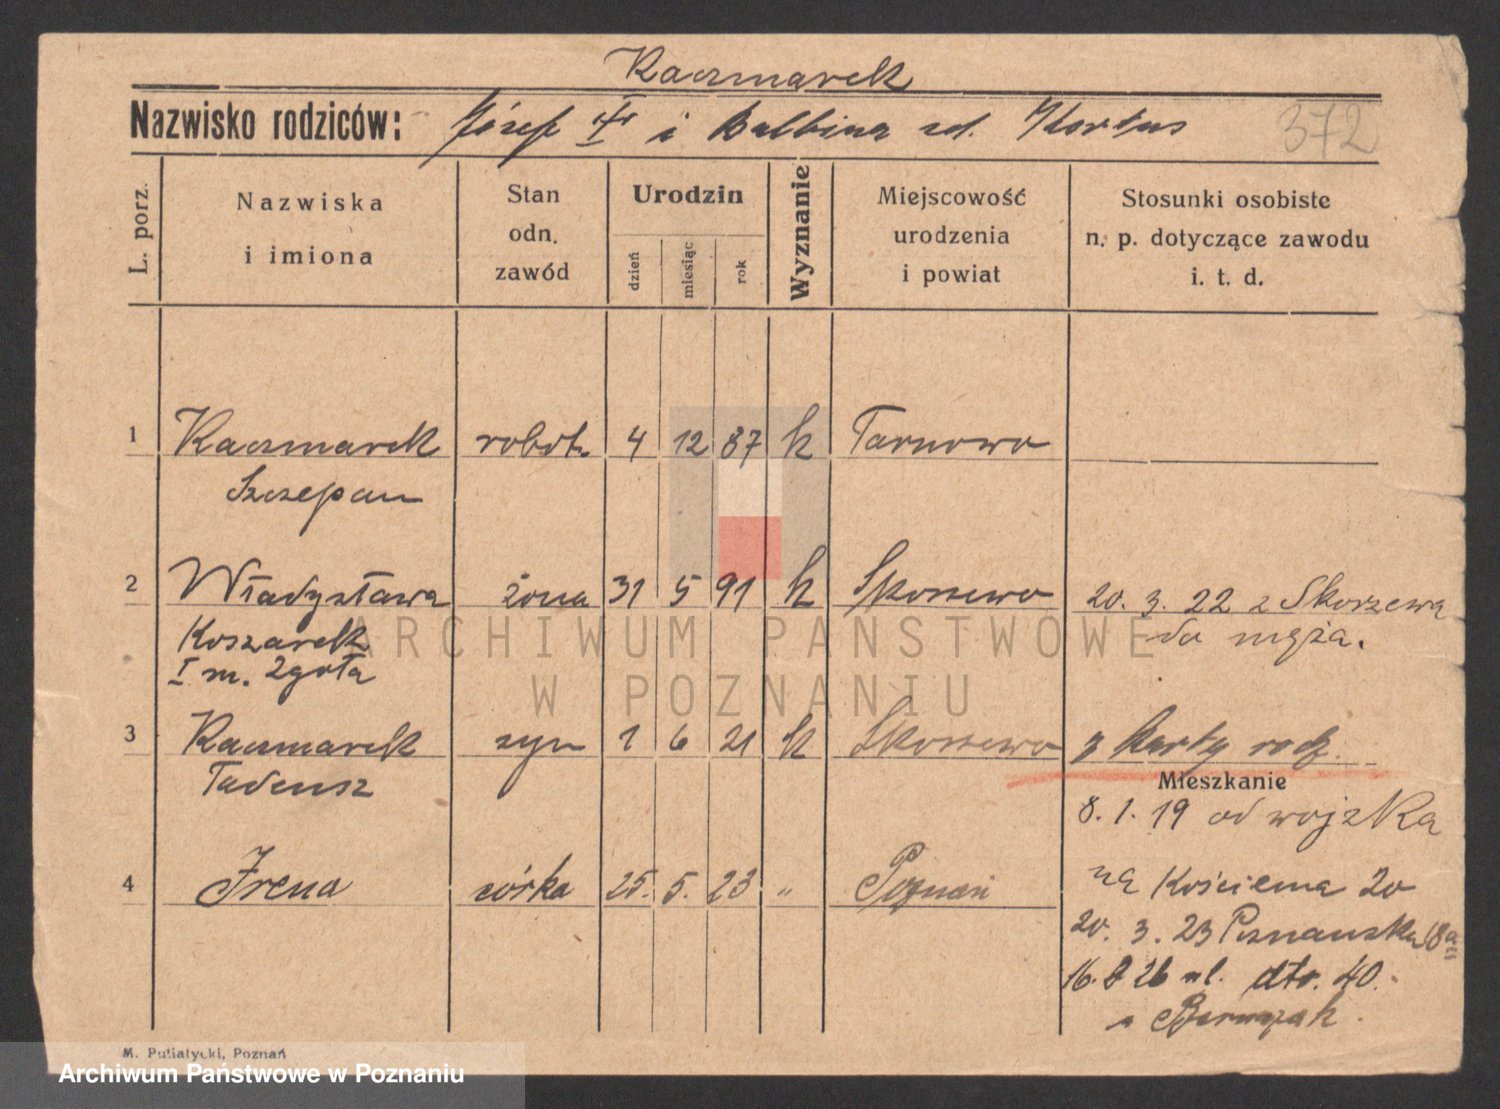 Kaczmarek
Nazwisko rodziców: Józef i Balbina zd.
372
L. porz.
Nazwiska
i imiona
Stan
odn.
zawód
Urodzin
dzień
miesiąc
rok
Wyznanie
Miejscowość
urodzenia
i powiat
Stosunki osobiste
n. p. dotyczące zawodu
i. t. d.
1 Kaczmarek robot. 4 12 87 k Tarnowo
Szczepan
2 Władysława żona 31 5 91 k Skorzewo 20. 3. 22 z Skorzewa
Koszarek do męża.
I m. Zgoła
3 Kaczmarek syn 1 6 21 k Skorzewo z karty rodz.
Tadeusz
Mieszkanie
8. 1. 19 od wojska
4 Irena córka 25. 5. 23 " Poznań na 20
20. 3. 23 Poznańska 18a
16. 26 ul. dto. 40.
u
ARCHIWUM PAŃSTWOWE
W POZNANIU
M. Putiatycki, Poznań
Archiwum Państwowe w Poznaniu